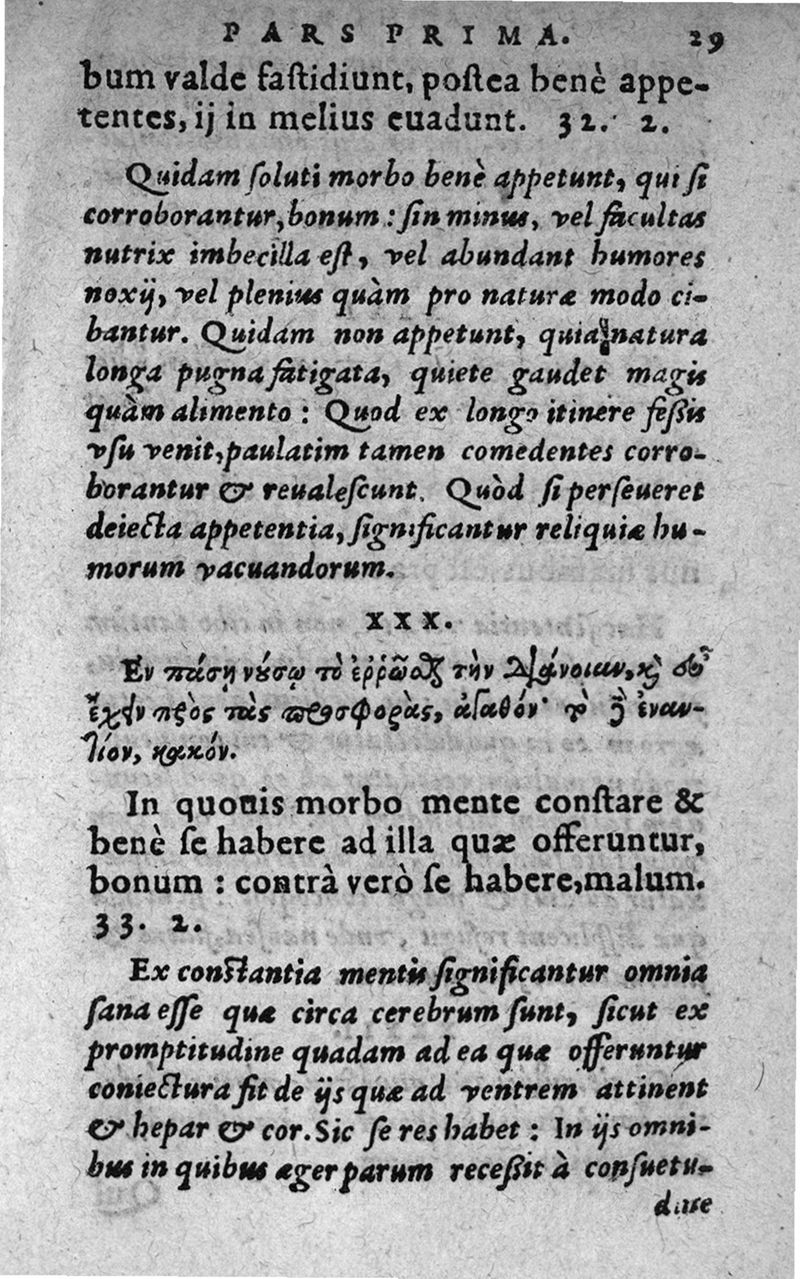 PARS PRIMA. 29
bum valde faſtidiunt, poſtea benè appe-
tentes, ij in melius euadunt. 32. 2.
Quidam ſoluti morbo benè appetunt, qui ſi
corroborantur, bonum: ſin minus, vel facultas
nutrix imbecilla eſt, vel abundant humores
noxij, vel plenius quàm pro naturæ modo ci-
bantur. Quidam non appetunt, quia natura
longa pugna fatigata, quiete gaudet magis
quàm alimento: Quod ex longo itinere feſſis
vſu venit, paulatim tamen comedentes corro-
borantur & reualeſcunt. Quòd ſi perſeueret
deiecta appetentia, ſignificantur reliquiæ hu-
morum vacuandorum.
XXX.
Ἐν πάσῃ νούσῳ τὸ ἐῤῥῶσθαι τὴν διάνοιαν, καὶ εὖ
ἔχειν πρὸς τὰς προσφορὰς, ἀγαθόν· τὸ δὲ ἐναν-
τίον, κακόν.
In quouis morbo mente conſtare &
benè ſe habere ad illa quæ offeruntur,
bonum: contrà verò ſe habere, malum.
33. 2.
Ex conſtantia mentis ſignificantur omnia
ſana eſſe quæ circa cerebrum ſunt, ſicut ex
promptitudine quadam ad ea quæ offeruntur
coniectura fit de ijs quæ ad ventrem attinent
& hepar & cor. Sic ſe res habet: In ijs omni-
bus in quibus æger parum receſſit à conſuetu-
dine